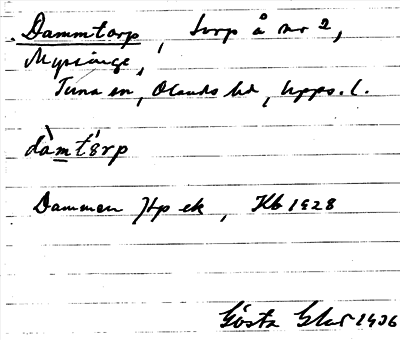 Dammtorp, torp å nr 2,
Myssinge,
Tuna sn, Olands hd, Upps. l.
dàmtårp
Dammen Jfp ek, Kb 1928
Gösta 1936